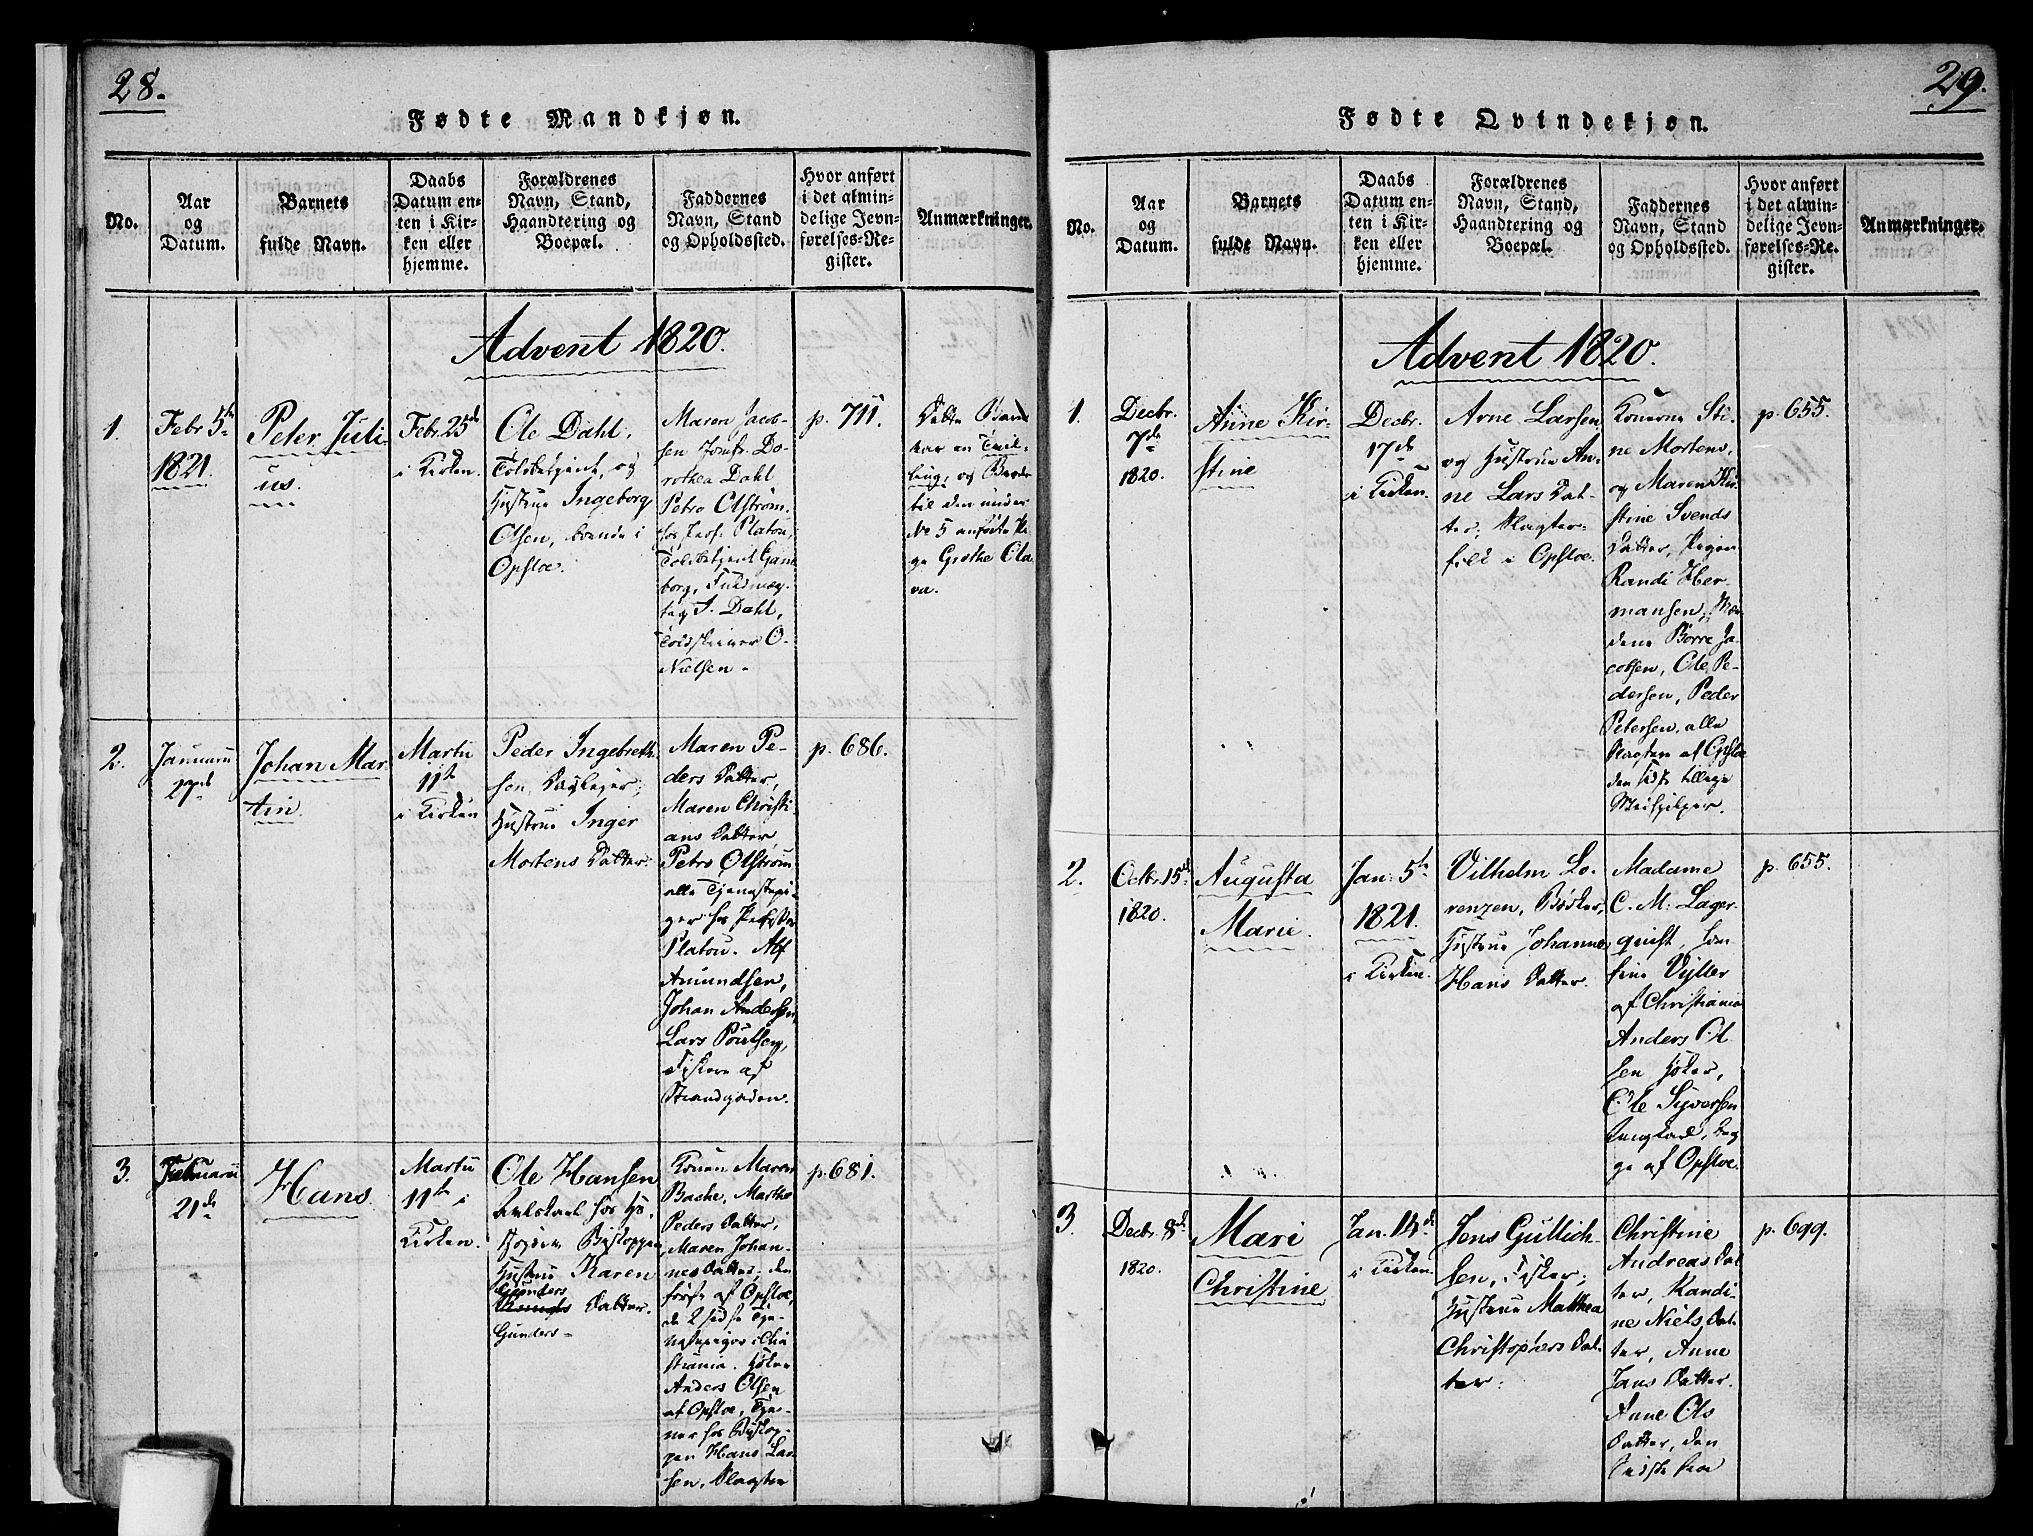 28.
Fødte Mandkjøn.
No.
Aar
og
Datum.
Barnets
fulde Navn.
Daabs
Datum en-
ten i Kir-
ken eller
hjemme.
Forældrenes
Navn, Stand,
Haandtering og
Boepæl.
Faddernes
Navn, Stand
og Opholdssted.
Hvor anført
i det almin-
delige Jevn-
førelses-Re-
gister.
Anmærkninger.
Advent 1820.
1.
Febr. 5te
1821.
Peter Juli-
us.
Febr. 25de
i Kirken.
Ole Dahl,
Toldbetjent, og
Hustrue Ingeborg
Olsen, boende i
Opsloe.
Maren Jacob-
sen, Jomfr. Do-
rothea Dahl
Petro Olström
hos Prof. Platou,
Toldbetjent Gam-
borg, Fuldmæg-
tig J. Dahl,
Toldskriver O.
Nielsen -
p. 711.
Dette Barn
var en Tvil-
ling, og Broder
til den under
No 5 anførte Pi-
ge Grethe Ola-
va.
2.
Januarii
27de
Johan Mar-
tin.
Martii
11te
i Kirken
Peder Ingebreth-
sen, Dagleier;
Hustrue Inger
Mortens Datter.
Maren Pe-
ders Datter,
Maren Christi
ans Datter,
Petro Olström
alle Tjenestepi-
ger hos
Platou. Alf
Amundsen,
Johan Andersen,
Lars Poulsen,
Fiskere af
Strandgaden.
p. 686.
3.
Februarii
21de
Hans.
Martii
11te i
Kirken.
Ole Hansen
hos
Biskoppen
Hustrue Karen
Gunders
Datter.
Gunders -
Konen Maren
Bache, Marthe
Peders Datter,
Maren Johan-
nes Datter, den
første af Opsloe,
de 2 sidste Tje-
nestepiger i Chri
stiania. Høker
Anders Olsen
af Opsloe, Tje-
ner hos Biskop-
pen Hans Lar-
sen, Slagter
p. 681.
29.
Fødte Qvindekjøn.
No.
Aar
og
Datum.
Barnets
fulde Navn.
Daabs
Datum en-
ten i Kir-
ken eller
hjemme.
Forældrenes
Navn, Stand,
Haandtering og
Boepæl.
Faddernes
Navn, Stand
og Opholdssted.
Hvor anført
i det almin-
delige Jevn-
førelses-Re-
gister.
Anmærkninger.
Advent 1820.
1.
Decbr.
7de
1820.
Anne Kir-
stine
Decbr.
17de
i Kirken.
Arne Larsen,
og Hustrue An-
ne Lars Dat-
ter; Slagter-
fold i Opsloe.
Konerne Sti-
ne Mortens,
og Maren Kir-
stine Svends
Datter, Pigen
Randi Her-
mansen; Mæn
dene Börre Ja-
cobsen, Ole Pe-
dersen, Peder
Petersen, alle
Slagtere af Opsloe
den sidste tillige
p. 655.
2.
Octbr. 15de
1820.
Augusta
Marie.
Jan: 5te
1821.
i Kirken.
Vilhelm Lo-
renzen, Bødker,
Hustrue Johanne
Hans Datter.
Madame
C. M. Lager-
quist, Jom-
frue Vyller
af Christiania
Anders Ol
sen Høker,
Ole Syversen
Ungkarl, beg
ge af Opsloe.
p. 655.
3.
Decbr. 8de
1820.
Mari
Christine
Jan. 14de
i Kirken
Jens Gullich-
sen, Fisker;
Hustrue Matthea
Christophers Dat-
ter.
Christine
Andreas Dat
ter, Randi-
ne Niels Dat-
ter, Anne
Jans Datter.
Anne Ols
Datter, den
sidste fra
p. 699.